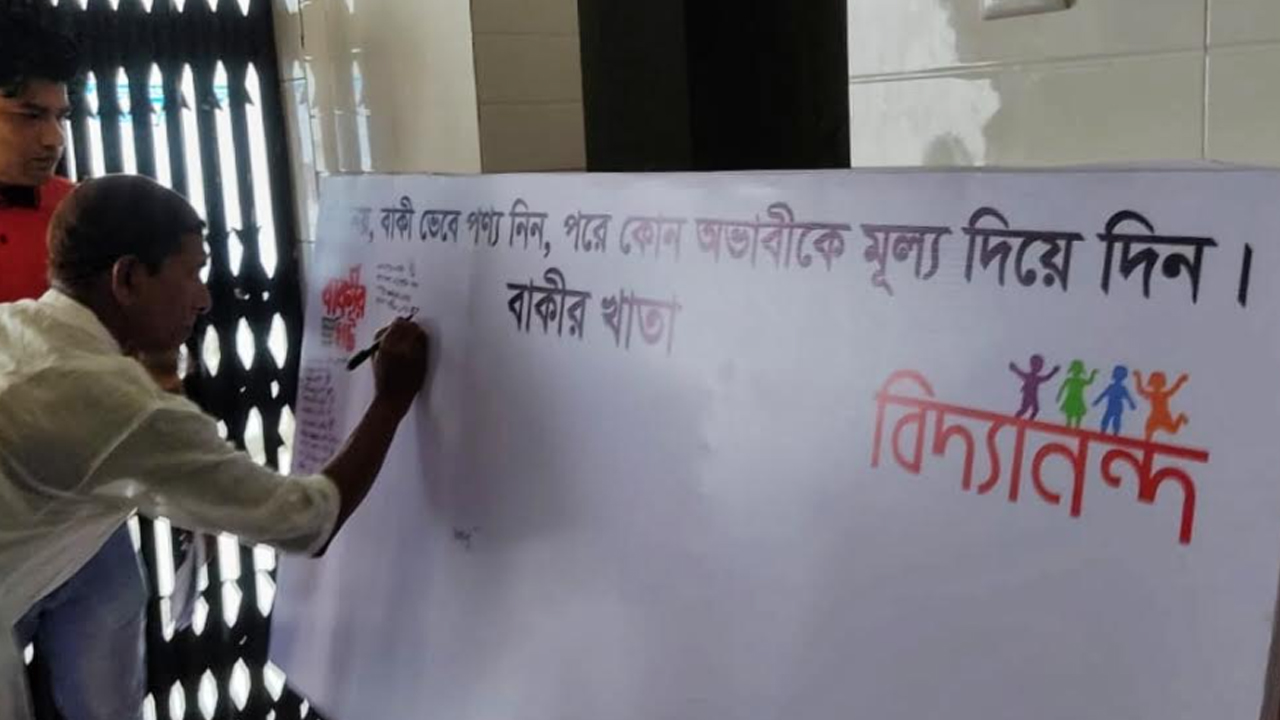 বাকী ভেবে পণ্য নিন, পরে কোন অভাবীকে মূল্য দিয়ে দিন।
বাকীর খাতা
বাকীর
বিদ্যানন্দ